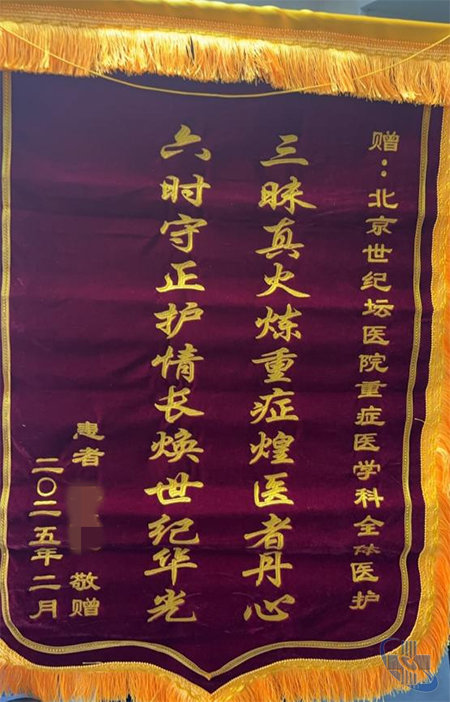 赠：北京世纪坛医院重症医学科全体医护
三昧真火炼重症煌医者丹心
六时守正护情长焕世纪华光
患者 敬赠
二〇二五年二月